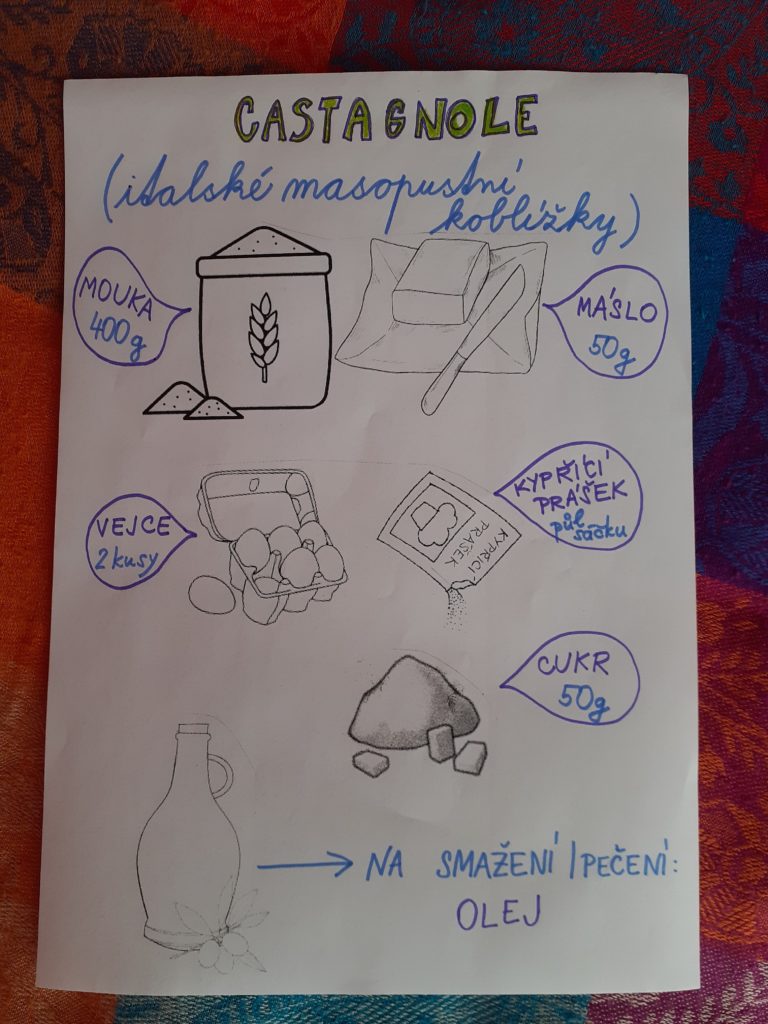 CASTAGNOLE
(italské masopustní
koblížky)
MOUKA
400g
MÁSLO
50g
VEJCE
2 kusy
KYPŘÍCÍ
PRÁŠEK
KYPŘÍCÍ
PRÁŠEK
půl
sáčku
CUKR
50g
NA SMAŽENÍ/PEČENÍ:
OLEJ